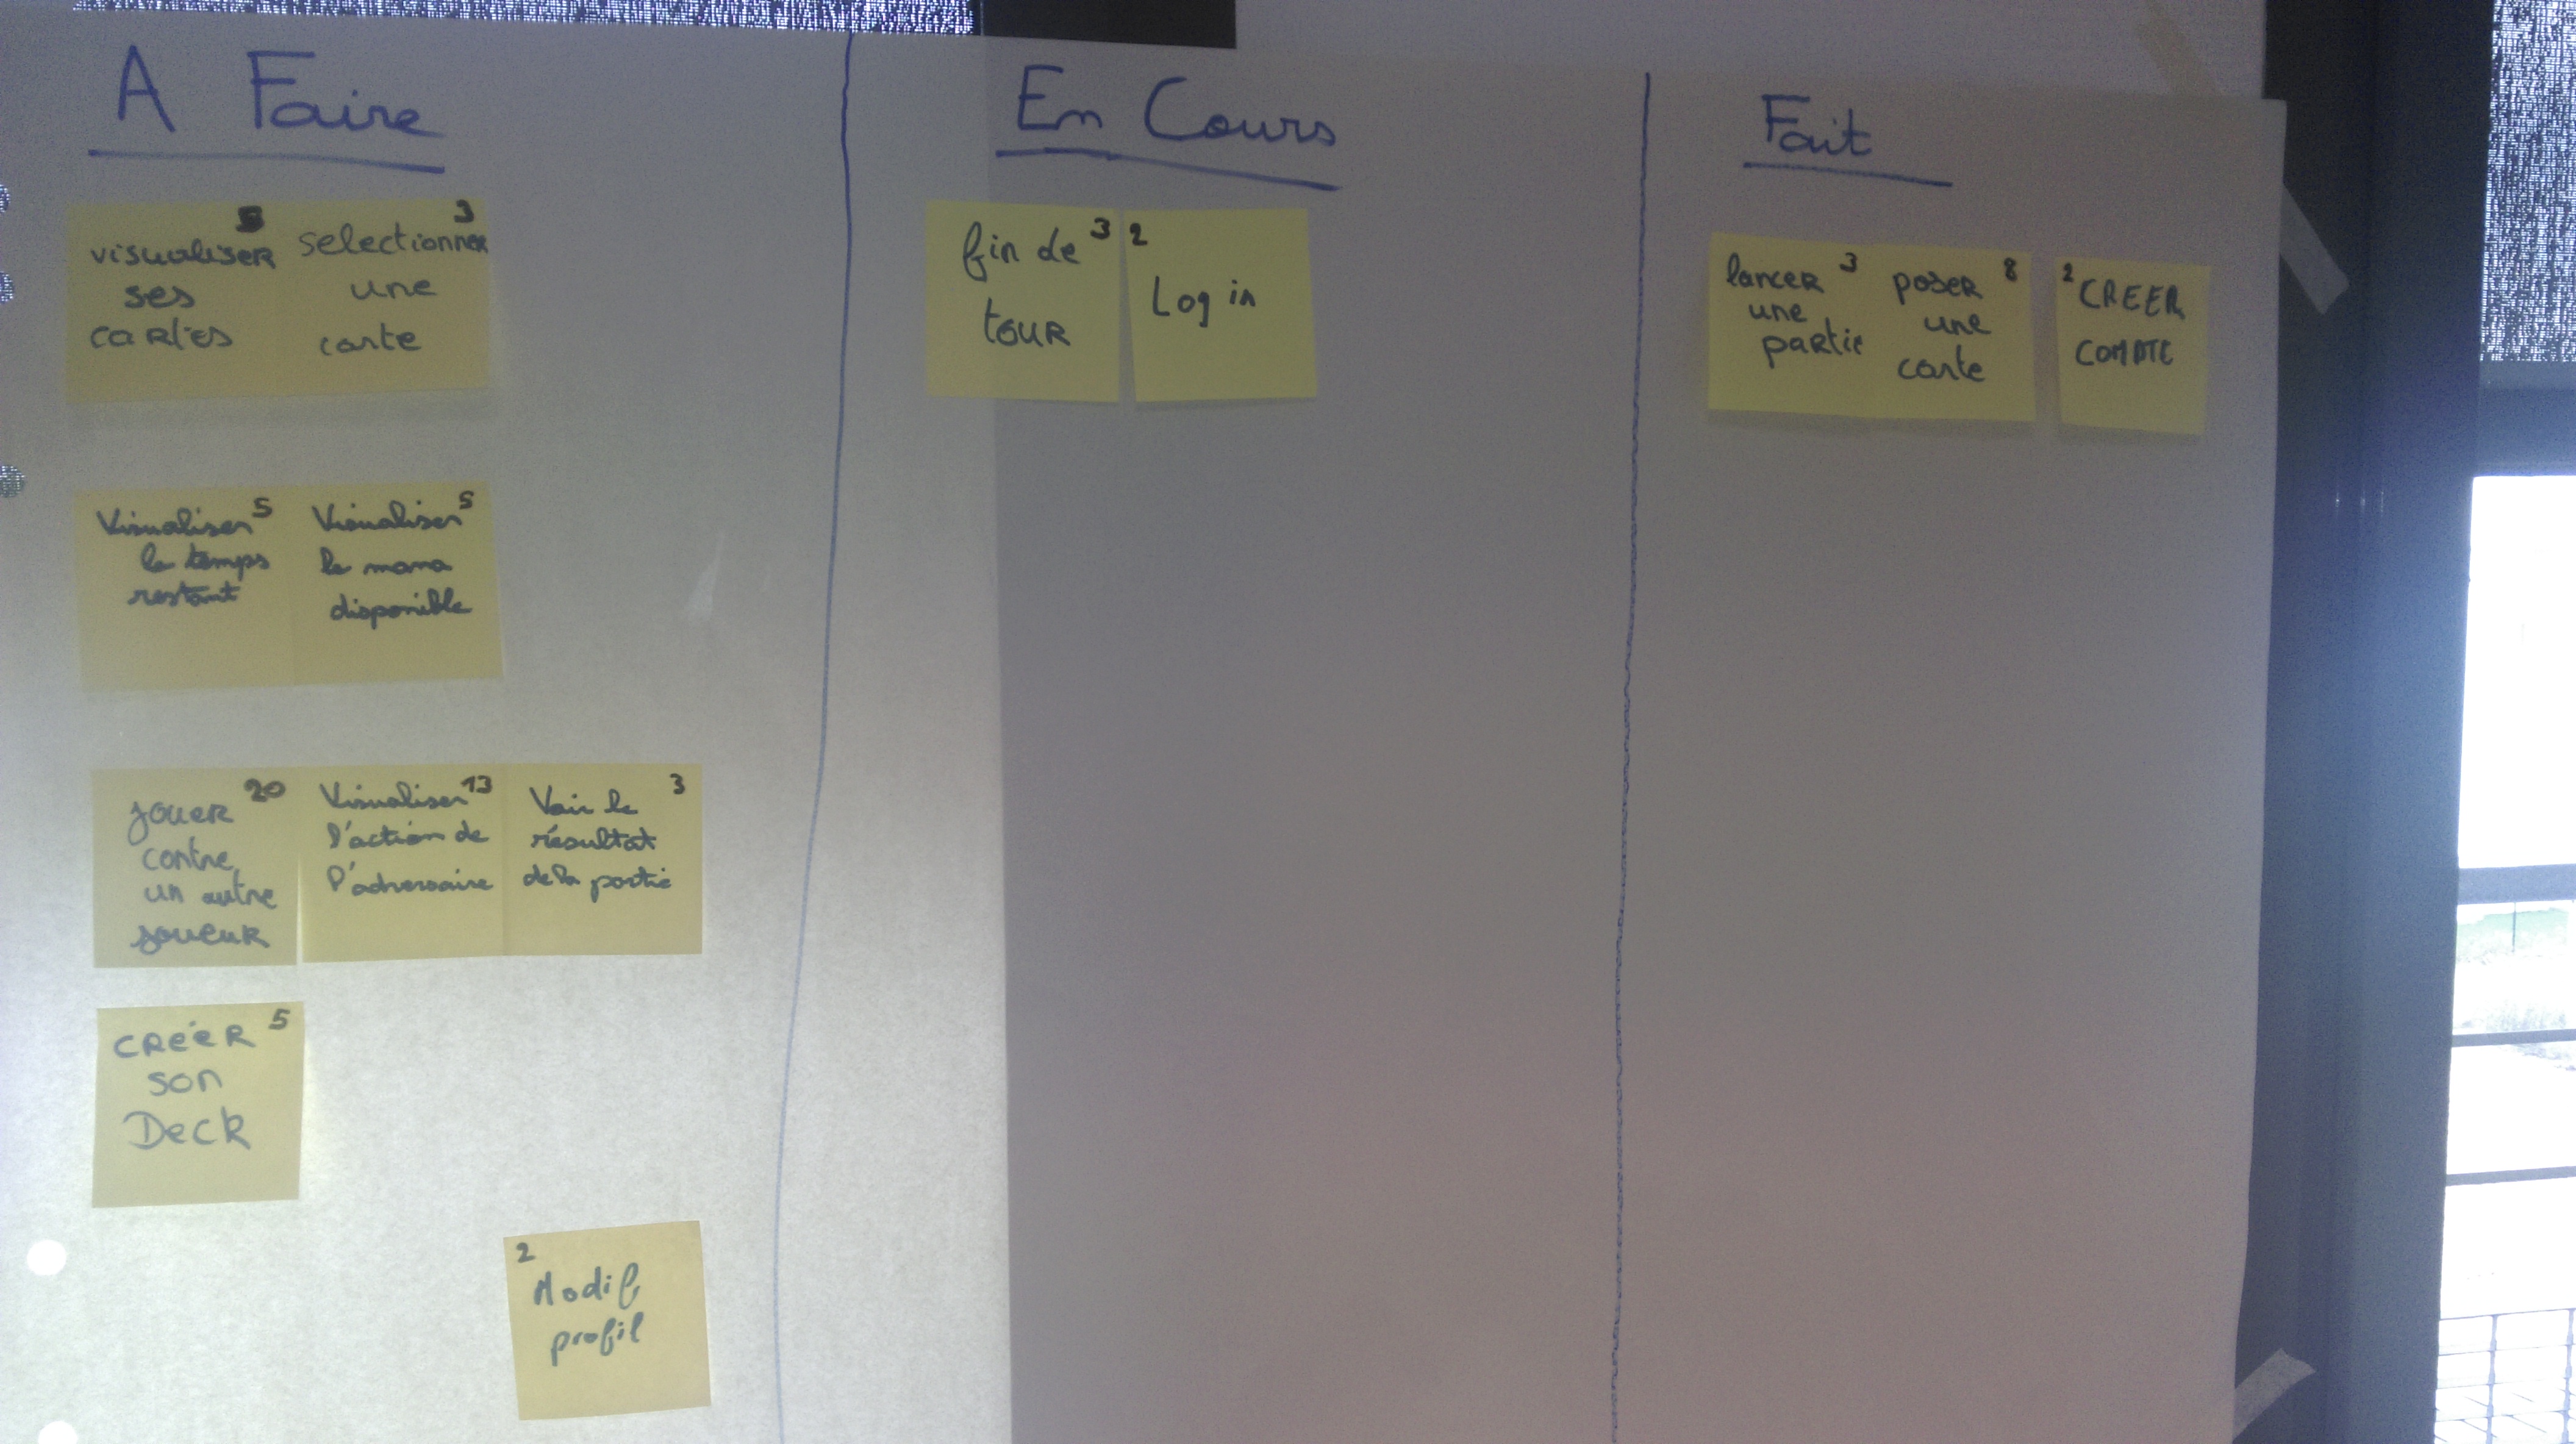 A Faire
visualiser
ses
cartes
3
selectionner
une
carte
5
Visualiser
le temps
restant
5
Visualiser
le mana
disponible
20
jouer
contre
un autre
joueur
13
Visualiser
l'action de
l'adversaire
3
Voir le
résultat
de la partie
5
créer
son
Deck
2
Modif
profil
En Cours
3
fin de
tour
2
Log in
Fait
3
lancer
une
partie
8
poser
une
carte
2
CREER
COMPTE